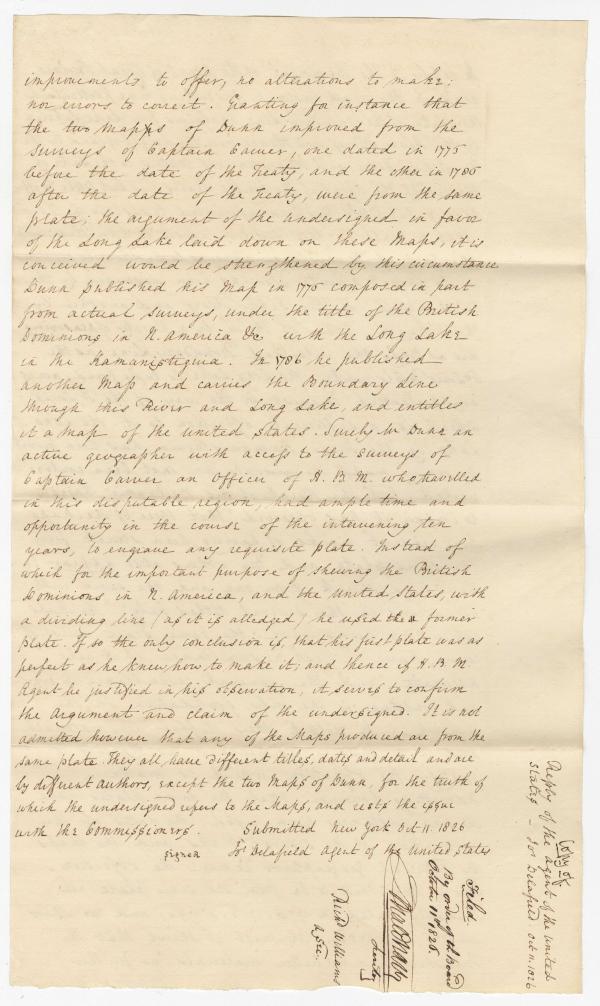 improvements to offer, no alterations to make;
nor errors to correct. Granting for instance that
the two maps of Dunn improved from the
surveys of Captain Carver, one dated in 1775
before the date of the Treaty, and the other in 1786
after the date of the Treaty, were from the same
plate; the argument of the undersigned in favor
of the Long Lake laid down on these Maps, it is
conceived would be strengthened by this circumstance
Dunn published his Map in 1775 composed in part
from actual surveys, under the title of the British
Dominions in N. America &c with the Long Lake
in the Kamanistiguia. In 1786 he published
another Map and carries the Boundary Line
through this River and Long Lake, and entitles
it a map of the united States. Surely Mr Dunn an
active geographer with access to the surveys of
Captain Carver an Officer of H. B. M. who travelled
in this disputable region, had ample time and
opportunity in the course of the intervening ten
years, to engrave any requisite plate. Instead of
which for the important purpose of shewing the British
Dominions in N. America, and the United States, with
a dividing line (as it is alledged) he used the former
plate. If so the only conclusion is, that his first plate was as
perfect as he knew how to make it; and thence if H. B. M.
Agent be justified in his observation, it serves to confirm
the Argument and claim of the undersigned. It is not
admitted however that any of the Maps produced are from the
same plate. They all have different titles, dates and detail and are
by different authors, except the two Maps of Dunn, for the truth of
which the undersigned refers to the Maps, and rests the issue
with the Commissioners. Submitted New York Oct 11. 1826
signed Jos Delafield Agent of the United States
Filed
By order of the Board
October 11th 1826.
Richd Williams
Secretary
Copy of
Reply of the agent of the united
States – Jos Delafield Oct 11. 1826